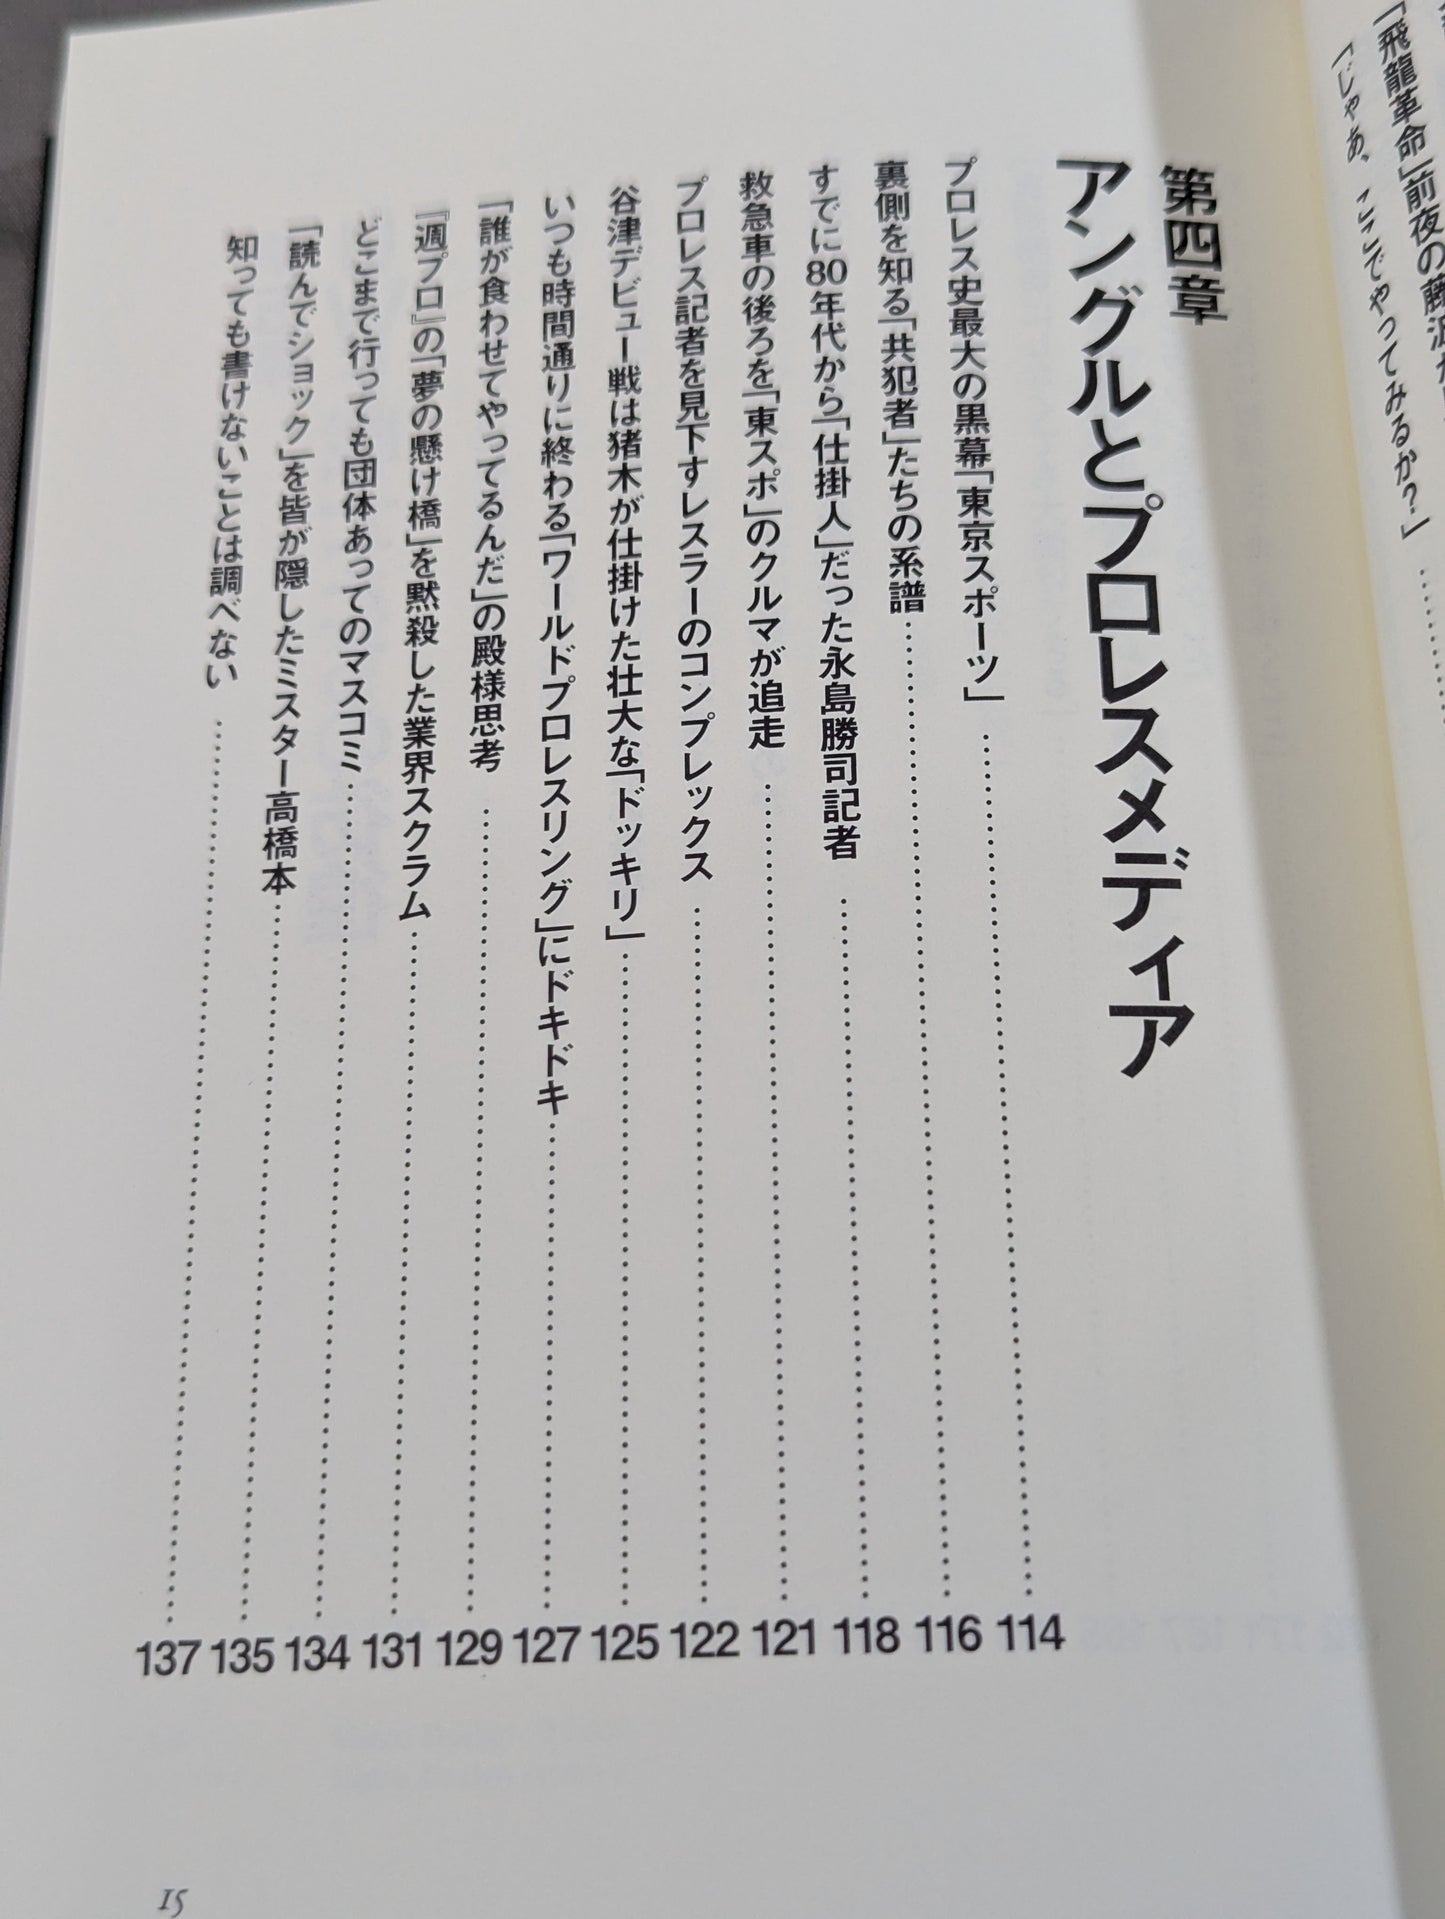 「飛龍革命」前夜の藤波
「じゃあ、ここでやってみるか？」
第四章
アングルとプロレスメディア
プロレス史最大の黒幕「東京スポーツ」 114
裏側を知る「共犯者」たちの系譜 116
すでに80年代から「仕掛人」だった永島勝司記者 118
救急車の後ろを「東スポ」のクルマが追走 121
プロレス記者を見下すレスラーのコンプレックス 122
谷津デビュー戦は猪木が仕掛けた壮大な「ドッキリ」 125
いつも時間通りに終わる「ワールドプロレスリング」にドキドキ 127
「誰が食わせてやってるんだ」の殿様思考 129
『週プロ』の「夢の懸け橋」を黙殺した業界スクラム 131
どこまで行っても団体あってのマスコミ 134
「読んでショック」を皆が隠したミスター高橋本 135
知っても書けないことは調べない 137
15